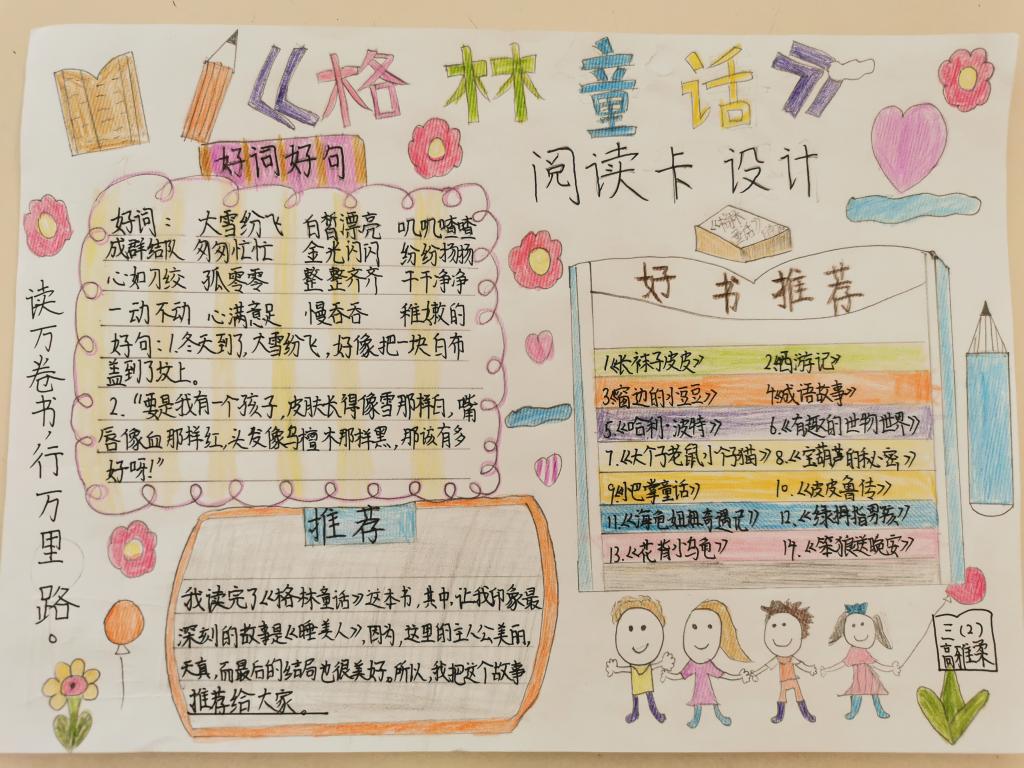 《格林童话》
阅读卡设计
好词好句
好词： 大雪纷飞 白皙漂亮 叽叽喳喳
成群结队 匆匆忙忙 金光闪闪 纷纷扬扬
心如刀绞 孤零零 整整齐齐 干干净净
一动不动 心满意足 慢吞吞 稚嫩的
好句：1.冬天到了,大雪纷飞,好像把一块白布
盖到了坟上。
2.“要是我有一个孩子,皮肤长得像雪那样白,嘴
唇像血那样红,头发像乌檀木那样黑,那该有多
好呀!”
读万卷书,行万里路。
推荐
我读完了《格林童话》这本书,其中,让我印象最
深刻的故事是《睡美人》,因为,这里的主人公美丽,
天真,而最后的结局也很美好。所以,我把这个故事
推荐给大家。
好书推荐
1《长袜子皮皮》 2《西游记》
3《窗边的小豆豆》 4《成语故事》
5.《哈利·波特》 6.《有趣的世物世界》
7.《大个子老鼠小个子猫》 8.《宝葫芦的秘密》
9《小巴掌童话》 10.《皮皮鲁传》
11.《海龟妞妞奇遇记》 12.《绿拇指男孩》
13.《花背小乌龟》 14.《笨狼送晚安》
三(2)
高雅柔